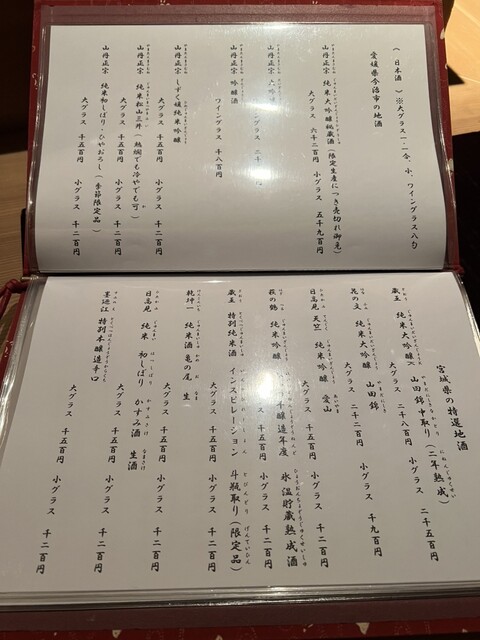 (日本酒) ※大グラス一・一合、小、ワイングラス八勺
愛媛県今治市の地酒
山丹正宗 純米大吟醸秘蔵酒(限定生産につき売切れ御免)
大グラス 六千二百円 小グラス 五千九百円
山丹正宗 大吟醸
山丹正宗 吟醸酒
ワイングラス 千八百円
山丹正宗 しずく媛純米吟醸
大グラス 千五百円 小グラス 千二百円
山丹正宗 純米松山三井(熱燗でも冷やでも可)
大グラス 千五百円 小グラス 千二百円
山丹正宗 純米初しぼり・ひやおろし(季節限定品)
大グラス 千五百円 小グラス 千二百円
宮城県の特選地酒
蔵王 純米大吟醸 山田錦中取り(二年熟成)
大グラス 二千八百円 小グラス 二千五百円
花の文 純米大吟醸 山田錦
大グラス 二千二百円 小グラス 千九百円
日高見 天竺 純米吟醸 愛山
大グラス 千五百円 小グラス 千二百円
萩の鶴 純米吟醸 醸造年度 氷温貯蔵熟成酒
千五百円 小グラス 千二百円
蔵王 特別純米酒 インスピレーション 斗瓶取り(限定品)
大グラス 千五百円 小グラス 千二百円
乾坤一 純米酒 亀の尾 生
大グラス 千五百円 小グラス 千二百円
日高見 純米 初しぼり かすみ酒 生酒
大グラス 千五百円 小グラス 千二百円
墨廼江 特別本醸造辛口
大グラス 千五百円 小グラス 千二百円